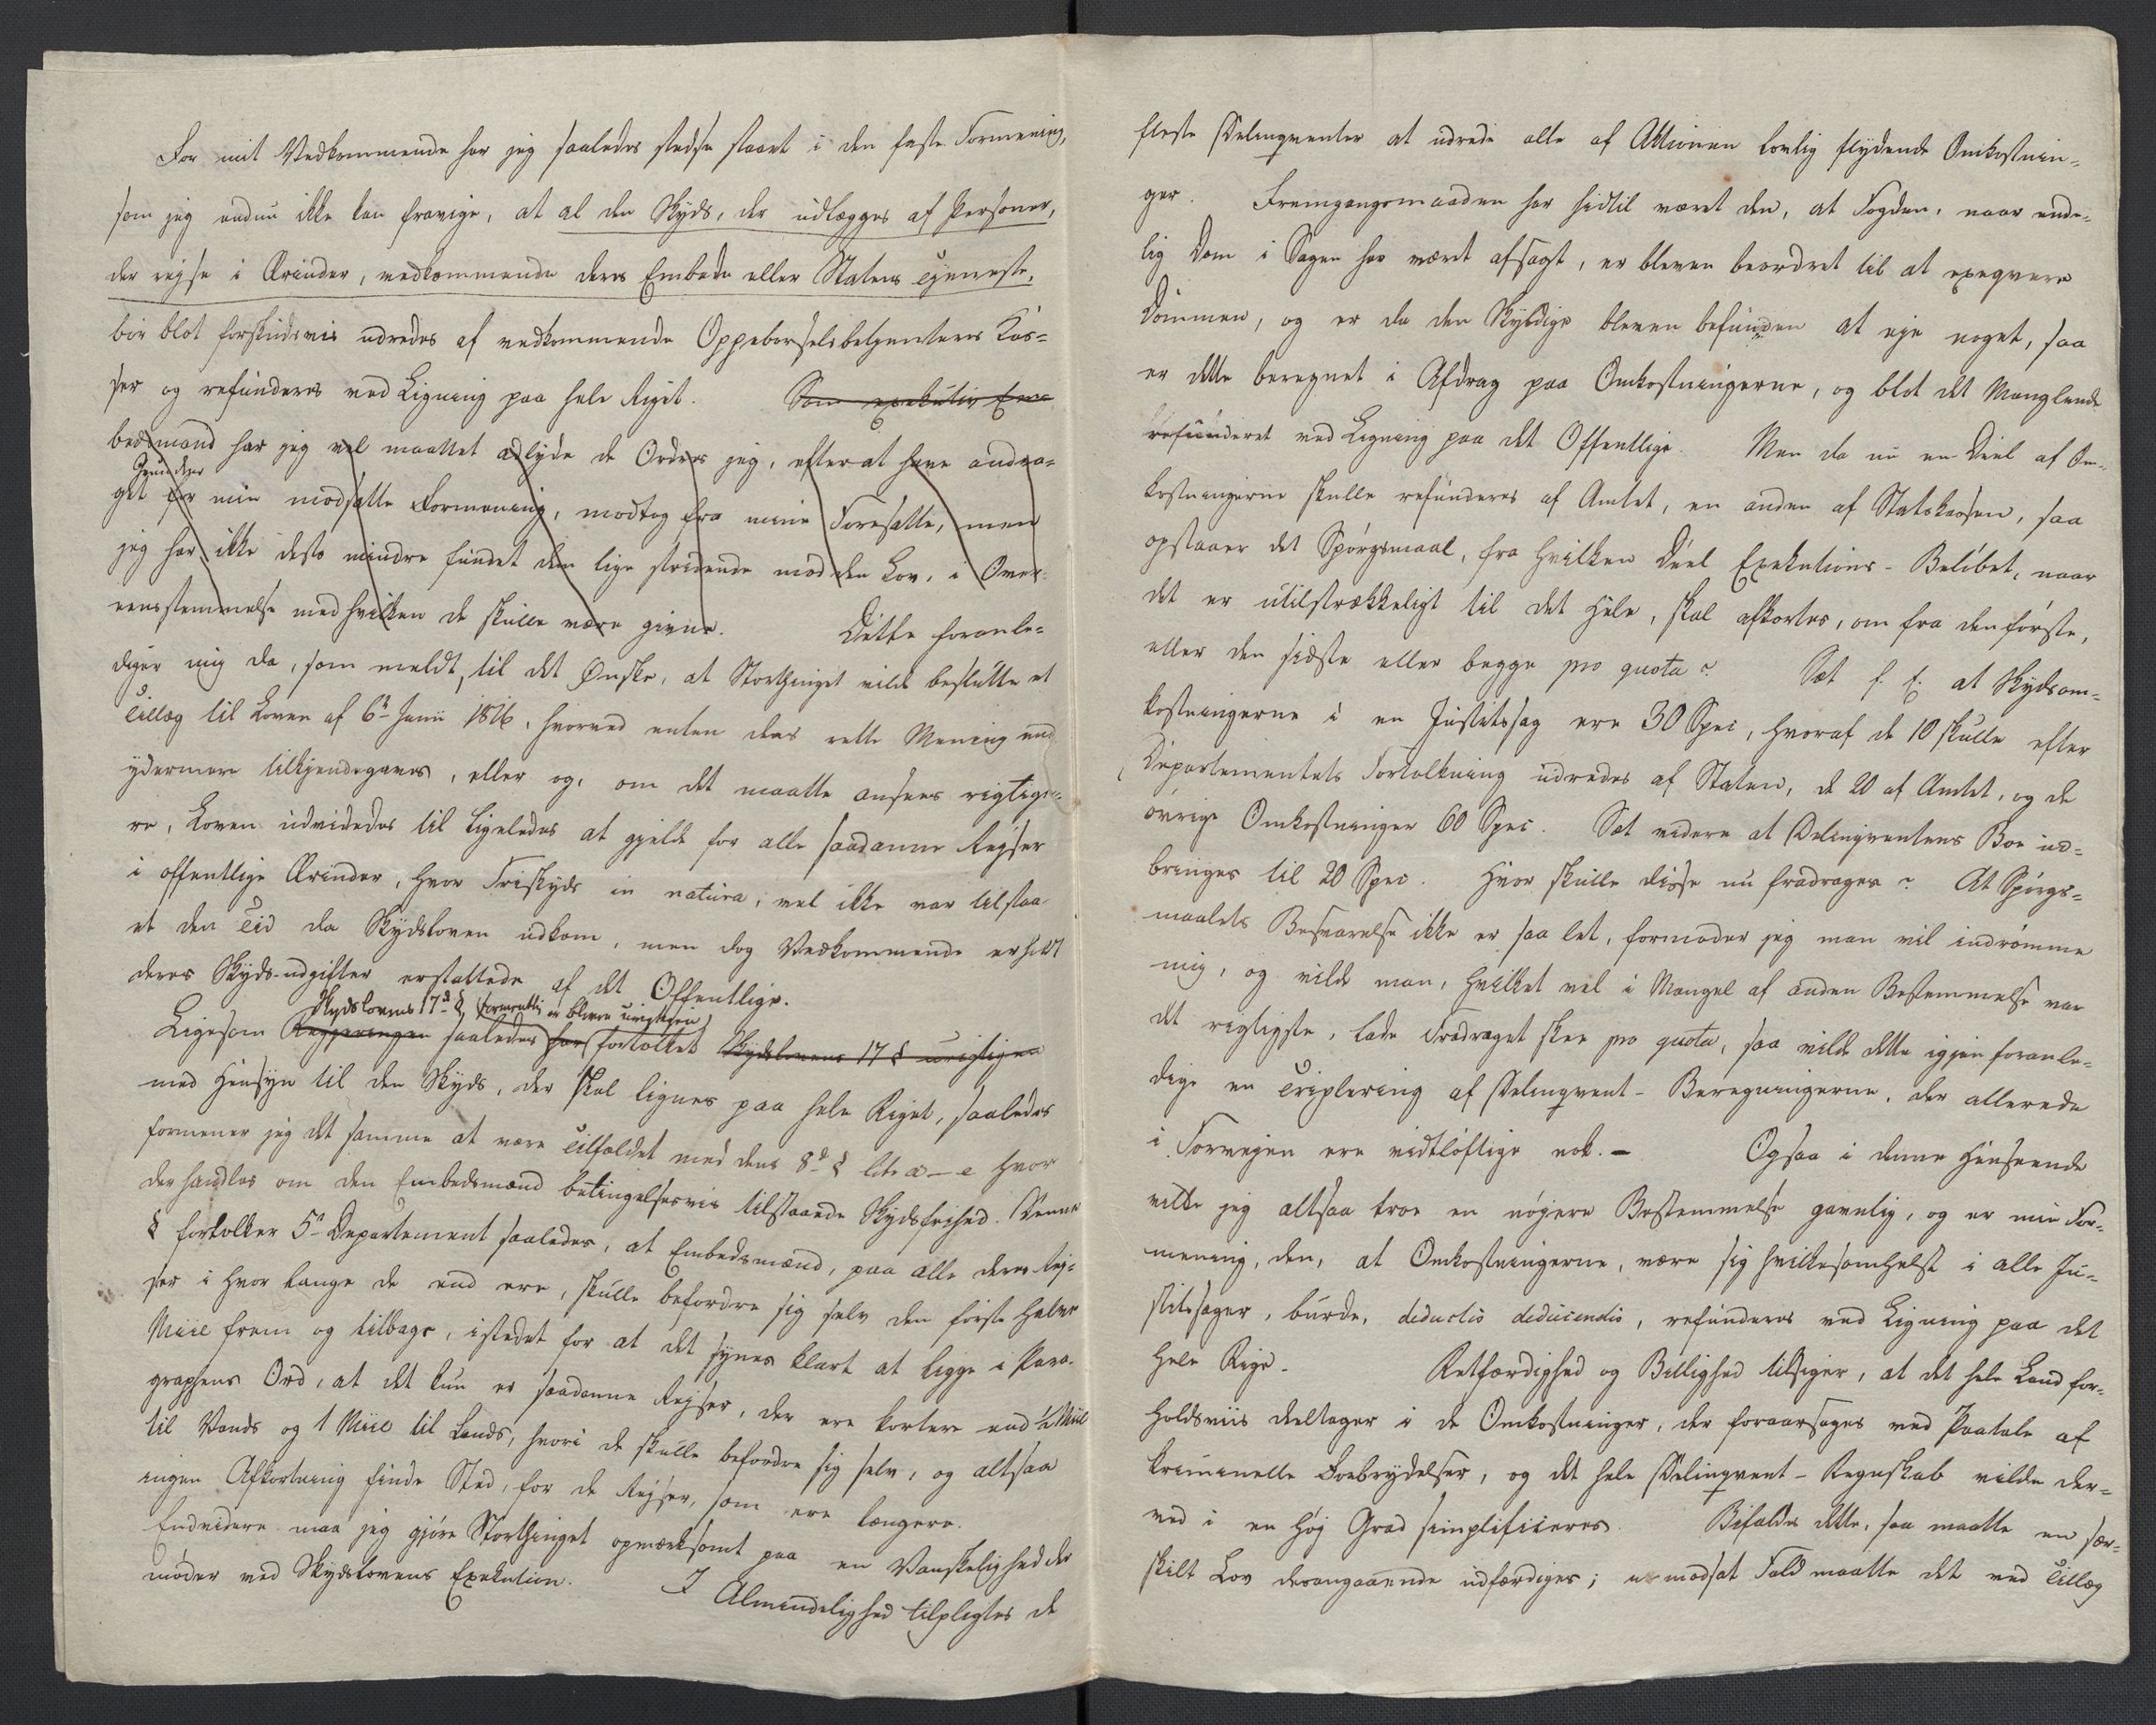 For mit Vedkommende har jeg saaledes stedse staaet i den faste Formening,
som jeg endnu ikke kan fravige, at al den Skyds, der udlægges af Personer,
der rejse i Ærinder, vedkommende deres Embede eller Statens Tjeneste,
bör blot forskudsvis udredes af vedkommende Oppeborselsbetjenteres Kas=
ser og refunderes ved Ligning paa hele Riget. Som exekutiv Em=
bedsmand har jeg vel maattet adlyde de Ordres jeg, efterat have andra=
Grundene
get for min modsatte Formening, modtog fra mine Foresatte, men
jeg har ikke desto mindre fundet dem lige stridende mod den Lov, i Over=
eensstemmelse med hvilken de skulle være givne. Dette foranle=
diger mig da, som meldt, til det Ønske, at Storthinget vilde beslutte et
Tillæg til Loven af 6te Junii 1816, hvorved enten dens rette Mening end
ydermere tilkjendegaves, eller og, om det maatte ansees rigtige=
re, Loven udvidedes til ligeledes at gjelde for alle saadanne Rejser
i offentlige Ærinder, hvor Friskyds in natura, vel ikke var tilstaa=
et den Tid da Skydsloven udkom, men dog Vedkommende erholdt
deres Skyds-udgifter erstattede af det Offentlige.
Skydslovens 17de §, formentlig er bleven urigtigen
Ligesom Regjeringen saaledes har fortolket Skydslovens 17 § urigtigen
med Hensyn til den Skyds, der skal lignes paa hele Riget, saaledes
formener jeg det samme at være Tilfældet med dens 8de § litr a-e hvor
der handles om den Embedsmænd betingelsesvis tilstaaede Skydsfrihed. Denne
§ fortolker 5te Departement saaledes, at Embedsmænd, paa alle deres Rej=
ser i hvor lange de end ere, skulle befordre sig selv den förste halve
Miil frem og tilbage, istedet for at det synes klart at ligge i Para=
graphens Ord, at det kun er saadanne Rejser, der ere kortere end ½ Miil
til Vands og 1 Miil til Lands, hvori de skulle befordre sig selv, og altsaa
ingen Afkortning finde Sted, for de Rejser, som ere længere.
Endvidere maa jeg gjöre Storthinget opmærksomt paa en Vanskelighed der
möder ved Skydslovens Exekution. I Almindelighed tilpligtes de
fleste Delinqventer at udrede alle af Aktionen lovlig flydende Omkostnin=
ger. Fremgangsmaaden har hidtil været den, at Fogden, naar ende=
lig Dom i Sagen har været afsagt, er bleven beordret til at exeqvere
Dommen, og er da den Skyldige bleven befunden at eje noget, saa
er dette beregnet i Afdrag paa Omkostningerne, og blot det Manglende
refunderet ved Ligning paa det Offentlige. Men da nu en Deel af Om=
kostningerne skulle refunderes af Amtet, en anden af Statskassen, saa
opstaaer det Spörgsmaal, fra hvilken Deel Exekutions-Belöbet, naar
det er utilstrækkeligt til det Hele, skal afkortes, om fra den förste,
eller den sidste eller begge pro quota? Sæt f. E. at Skydsom=
kostningerne i en Justitssag ere 30 Spec, hvoraf de 10 skulle efter
Departementets Fortolkning udredes af Staten, de 20 af Amtet, og de
övrige Omkostninger 60 Spec. Sæt videre at Delinqventens Boe ud=
bringes til 20 Spec. Hvor skulle disse nu fradrages? At Spörgs=
maalets Besvarelse ikke er saa let, formoder jeg man vil indrömme
mig, og vilde man, hvilket vel i Mangel af anden Bestemmelse var
det rigtigste, lade Fradraget skee pro quota, saa vilde dette igjen foranle=
dige en Triplering af Delinqvent-Beregningerne, der allerede
i Forvejen ere vidtlöftige nok. - Ogsaa i denne Henseende
vilde jeg altsaa troe en nöjere Bestemmelse gavnlig, og er min For=
mening, den, at Omkostningerne, være sig hvilkesomhelst i alle Ju=
stitssager, burde, deductis deducendis, refunderes ved Ligning paa det
hele Rige. Retfærdighed og Billighed tilsiger, at det hele Land for=
holdsviis deeltager i de Omkostninger, der foraarsages ved Paatale af
kriminelle Forbrydelser, og det hele Delinqvent-Regnskab vilde der=
ved i en höj Grad simplificeres. Bifaldes dette, saa maatte en sær=
skilt Lov desangaaende udfærdiges; i modsat Fald maatte det ved Tillæg